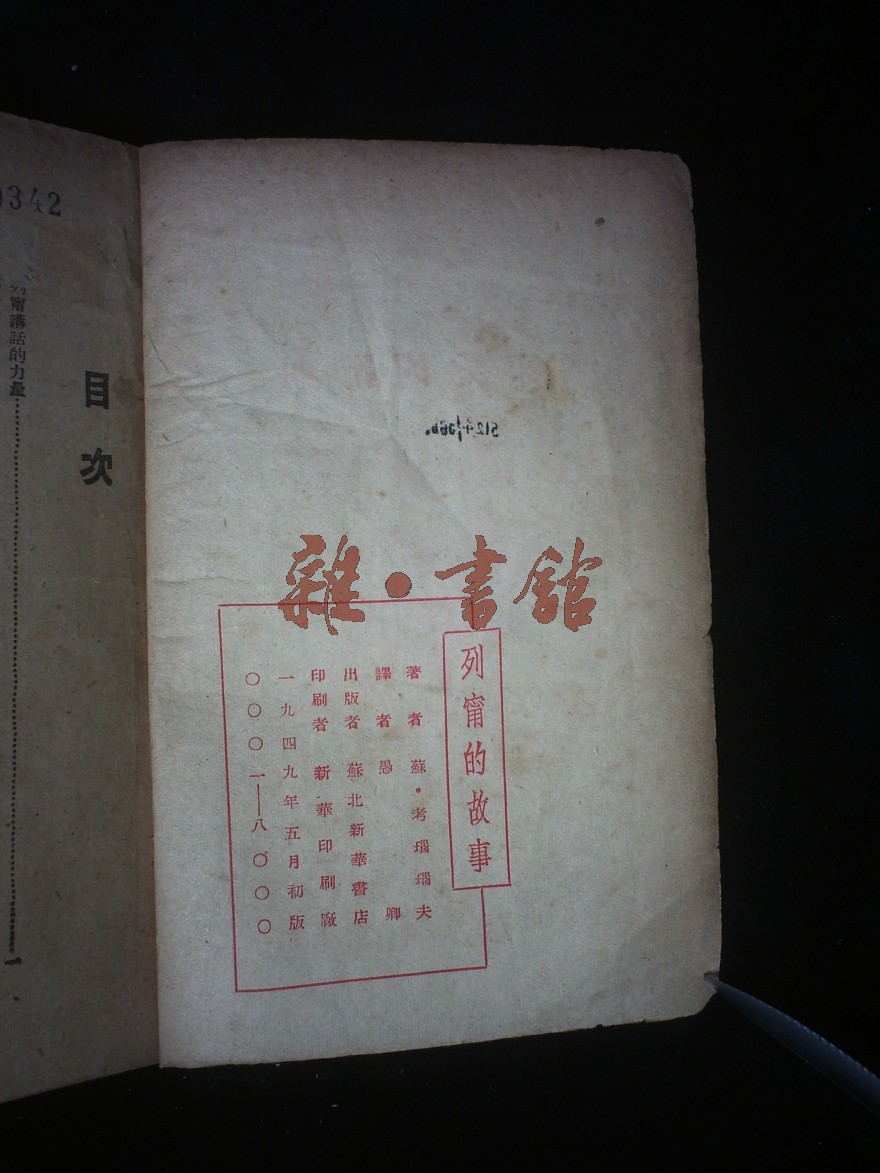 雜·書館
列甯的故事
著者 蘇·考瑙瑙夫
譯者 愚卿
出版者 蘇北新華書店
印刷者 新華印刷廠
一九四九年五月初版
〇〇〇一——八〇〇〇
目次
甯講話的力量
342